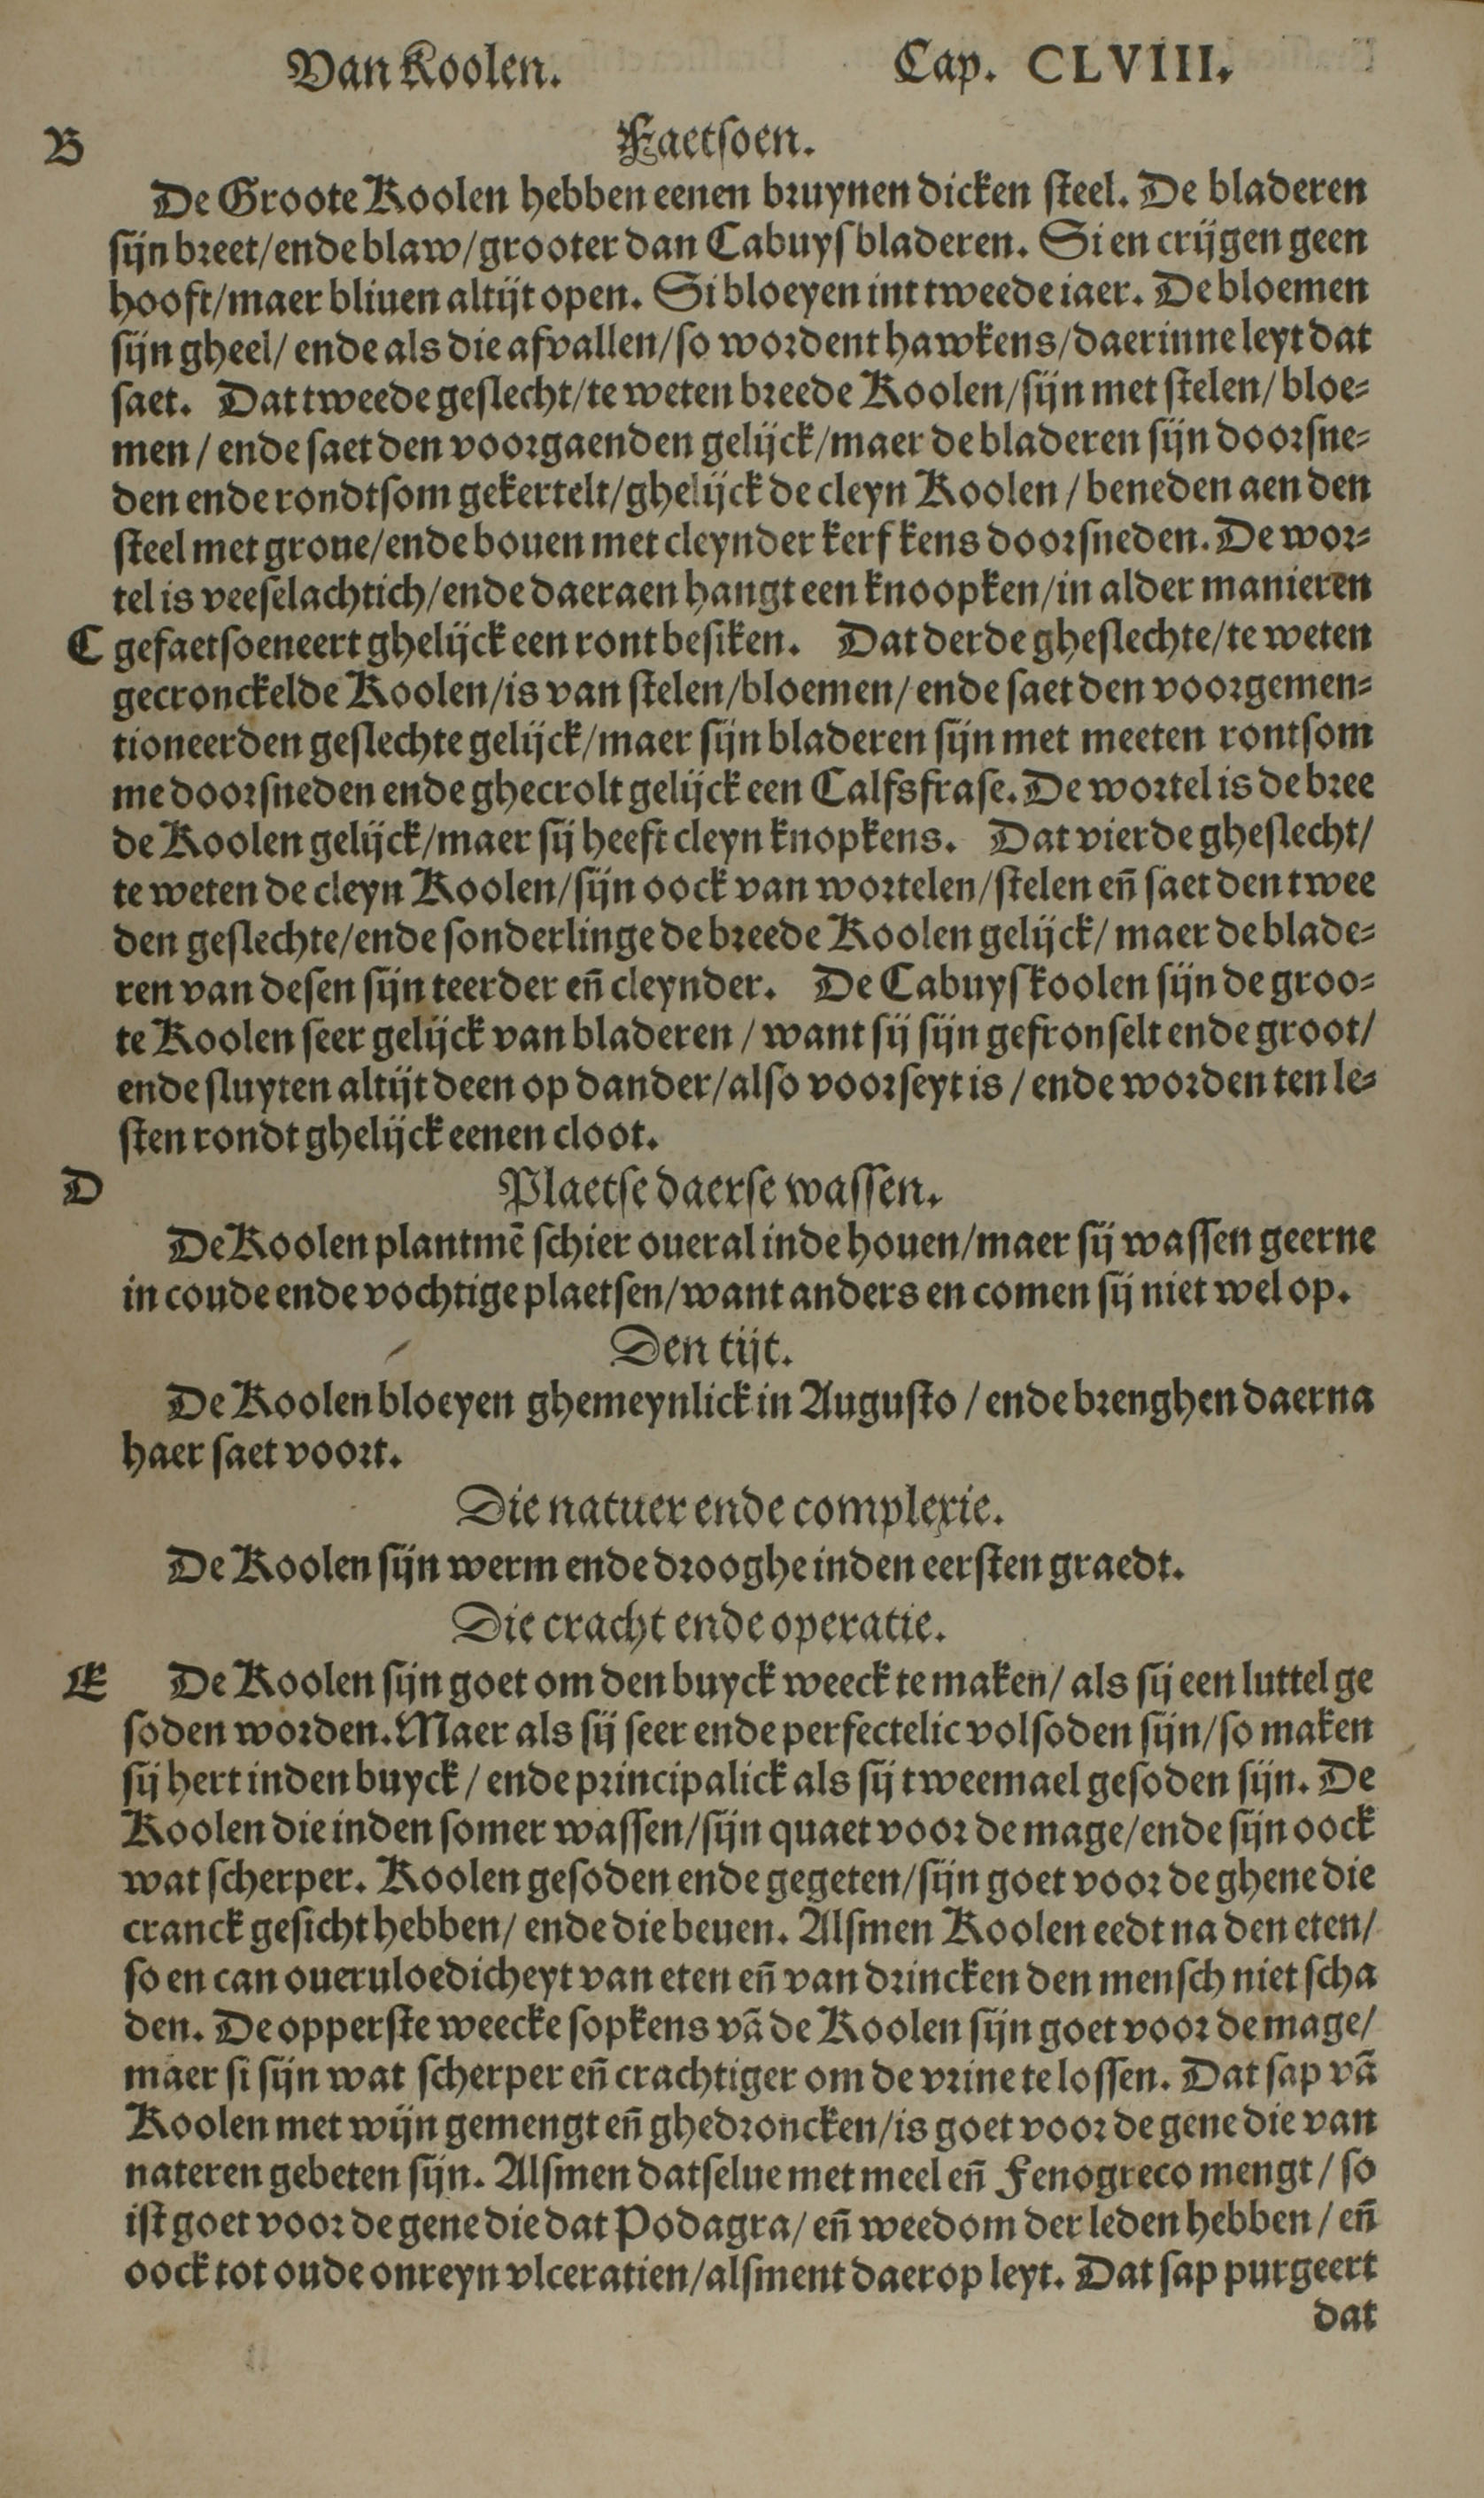 Van Koolen. Cap. CLVIII.
B Faetsoen.
De Groote Koolen hebben eenen bruynen dicken steel. De bladeren
sijn breet/ende blaw/grooter dan Cabuys bladeren. Si en crijgen geen
hooft/maer bliuen altijt open. Si bloeyen int tweede iaer. De bloemen
sijn gheel/ ende als die afvallen/so wordent hawkens/daerinne leyt dat
saet. Dat tweede geslecht/te weten breede Koolen/sijn met stelen/ bloe=
men / ende saet den voorgaenden gelijck/maer de bladeren sijn doorsne=
den ende rondtsom gekertelt/ghelijck de cleyn Koolen / beneden aen den
steel met groue/ende bouen met cleynder kerfkens doorsneden. De wor=
tel is veeselachtich/ende daer aen hangt een knoopken/in alder manieren
C gefaetsoeneert ghelijck een ront besiken. Dat derde gheslechte/te weten
gecronckelde Koolen/is van stelen/bloemen/ende saet den voorgemen=
tioneerden geslechte gelijck/maer sijn bladeren sijn met meeten rontsom
me doorsneden ende ghecrolt gelijck een Calfsfrase. De wortel is de bree
de Koolen gelijck/maer sij heeft cleyn knopkens. Dat vierde gheslecht/
te weten de cleyn Koolen/sijn oock van wortelen/stelen en̄ saet den twee
den geslechte/ende sonderlinge de breede Koolen gelijck/ maer de blade=
ren van desen sijn teerder en̄ cleynder. De Cabuyskoolen sijn de groo=
te Koolen seer gelijck van bladeren / want sij sijn gefronselt ende groot/
ende sluyten altijt deen op dander/also voorseyt is / ende worden ten le=
sten rondt ghelijck eenen cloot.
D Plaetse daerse wassen.
De Koolen plantmē schier oueral inde houen/maer sij wassen geerne
in coude ende vochtige plaetsen/want anders en comen sij niet wel op.
Den tijt.
De Koolen bloeyen ghemeynlick in Augusto / ende brenghen daerna
haer saet voort.
Die natuer ende complexie.
De Koolen sijn werm ende drooghe inden eersten graedt.
Die cracht ende operatie.
E De Koolen sijn goet om den buyck weeck te maken/ als sij een luttel ge
soden worden. Maer als sij seer ende perfectelic volsoden sijn/so maken
sij hert inden buyck / ende principalick als sij tweemael gesoden sijn. De
Koolen die inden somer wassen/sijn quaet voor de mage/ende sijn oock
wat scherper. Koolen gesoden ende gegeten/sijn goet voor de ghene die
cranck gesicht hebben/ ende die beuen. Alsmen Koolen eedt na den eten/
so en can oueruloedicheyt van eten en̄ van drincken den mensch niet scha
den. De opperste weecke sopkens vā de Koolen sijn goet voor de mage/
maer si sijn wat scherper en̄ crachtiger om de vrine te lossen. Dat sap vā
Koolen met wijn gemengt en̄ ghedroncken/is goet voor de gene die van
nateren gebeten sijn. Alsmen datselue met meel en̄ Fenogreco mengt / so
ist goet voor de gene die dat Podagra/ en̄ weedom der leden hebben / en̄
oock tot oude onreyn vlceratien/alsment daer op leyt. Dat sap purgeert
dat